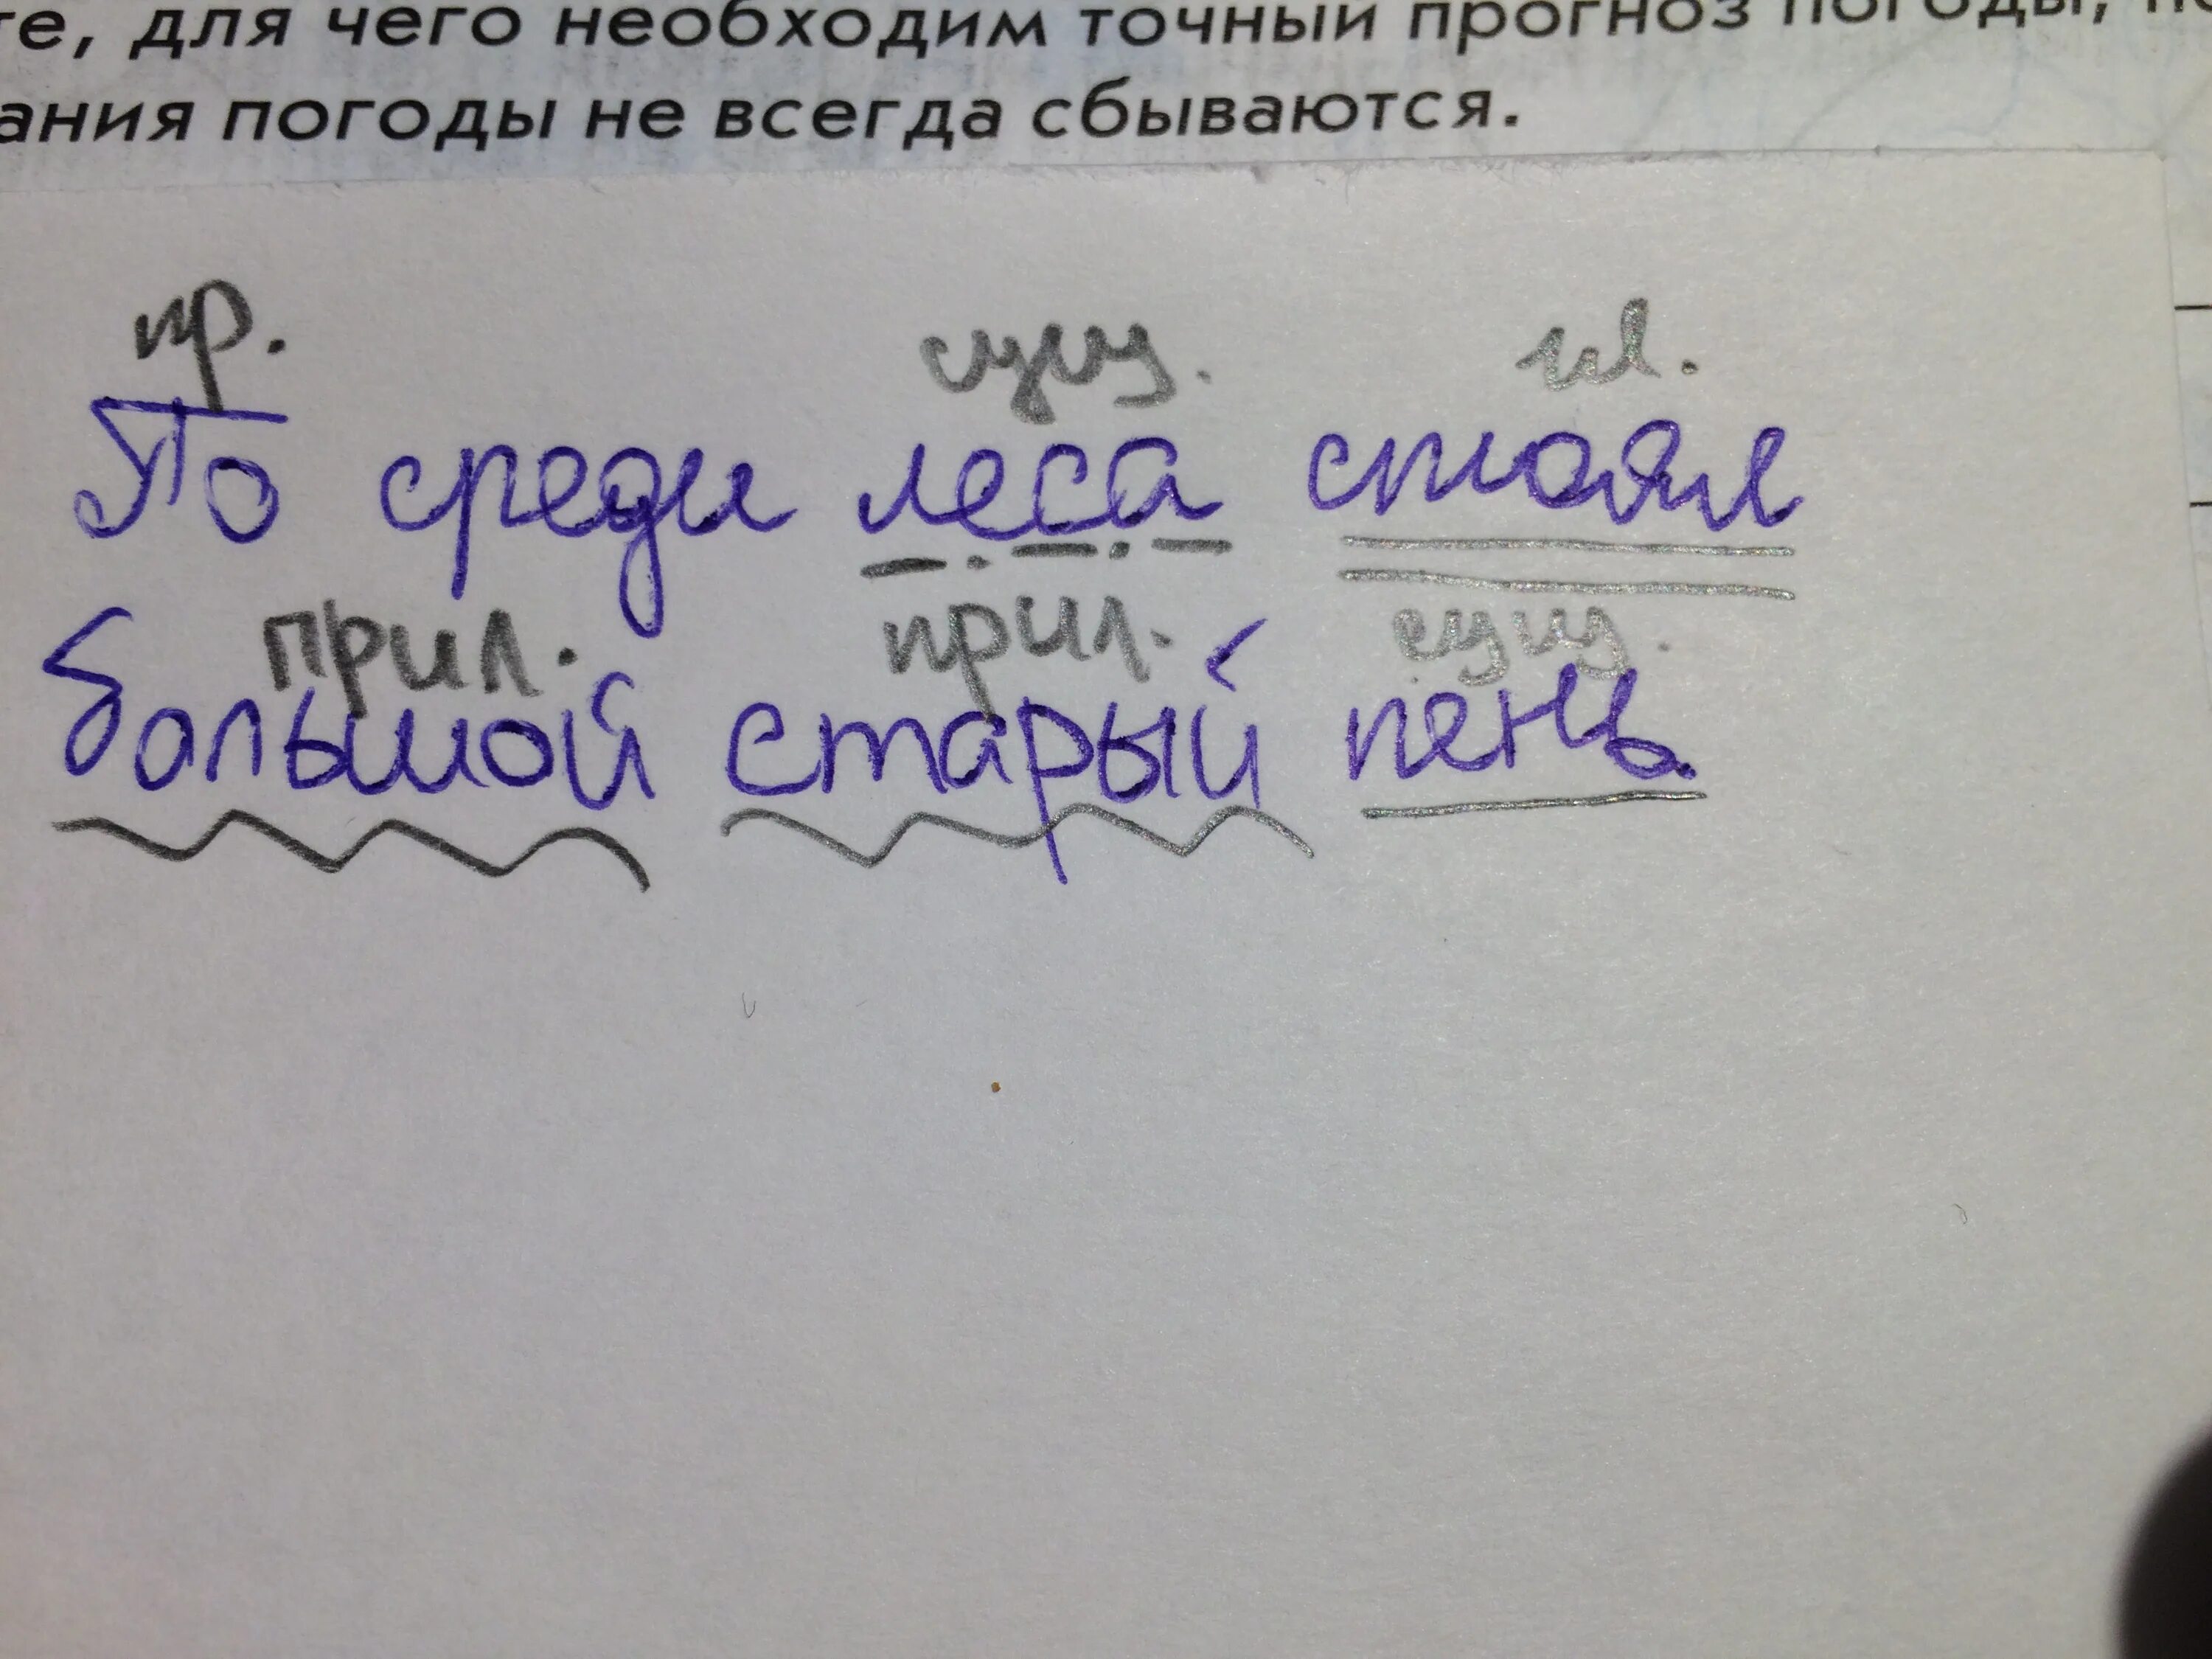 те, для чего необходим точный прогноз погоды,
ания погоды не всегда сбываются.
пр. сущ. гл.
По среди леса стоял
прил. прил. сущ.
большой старый пень.